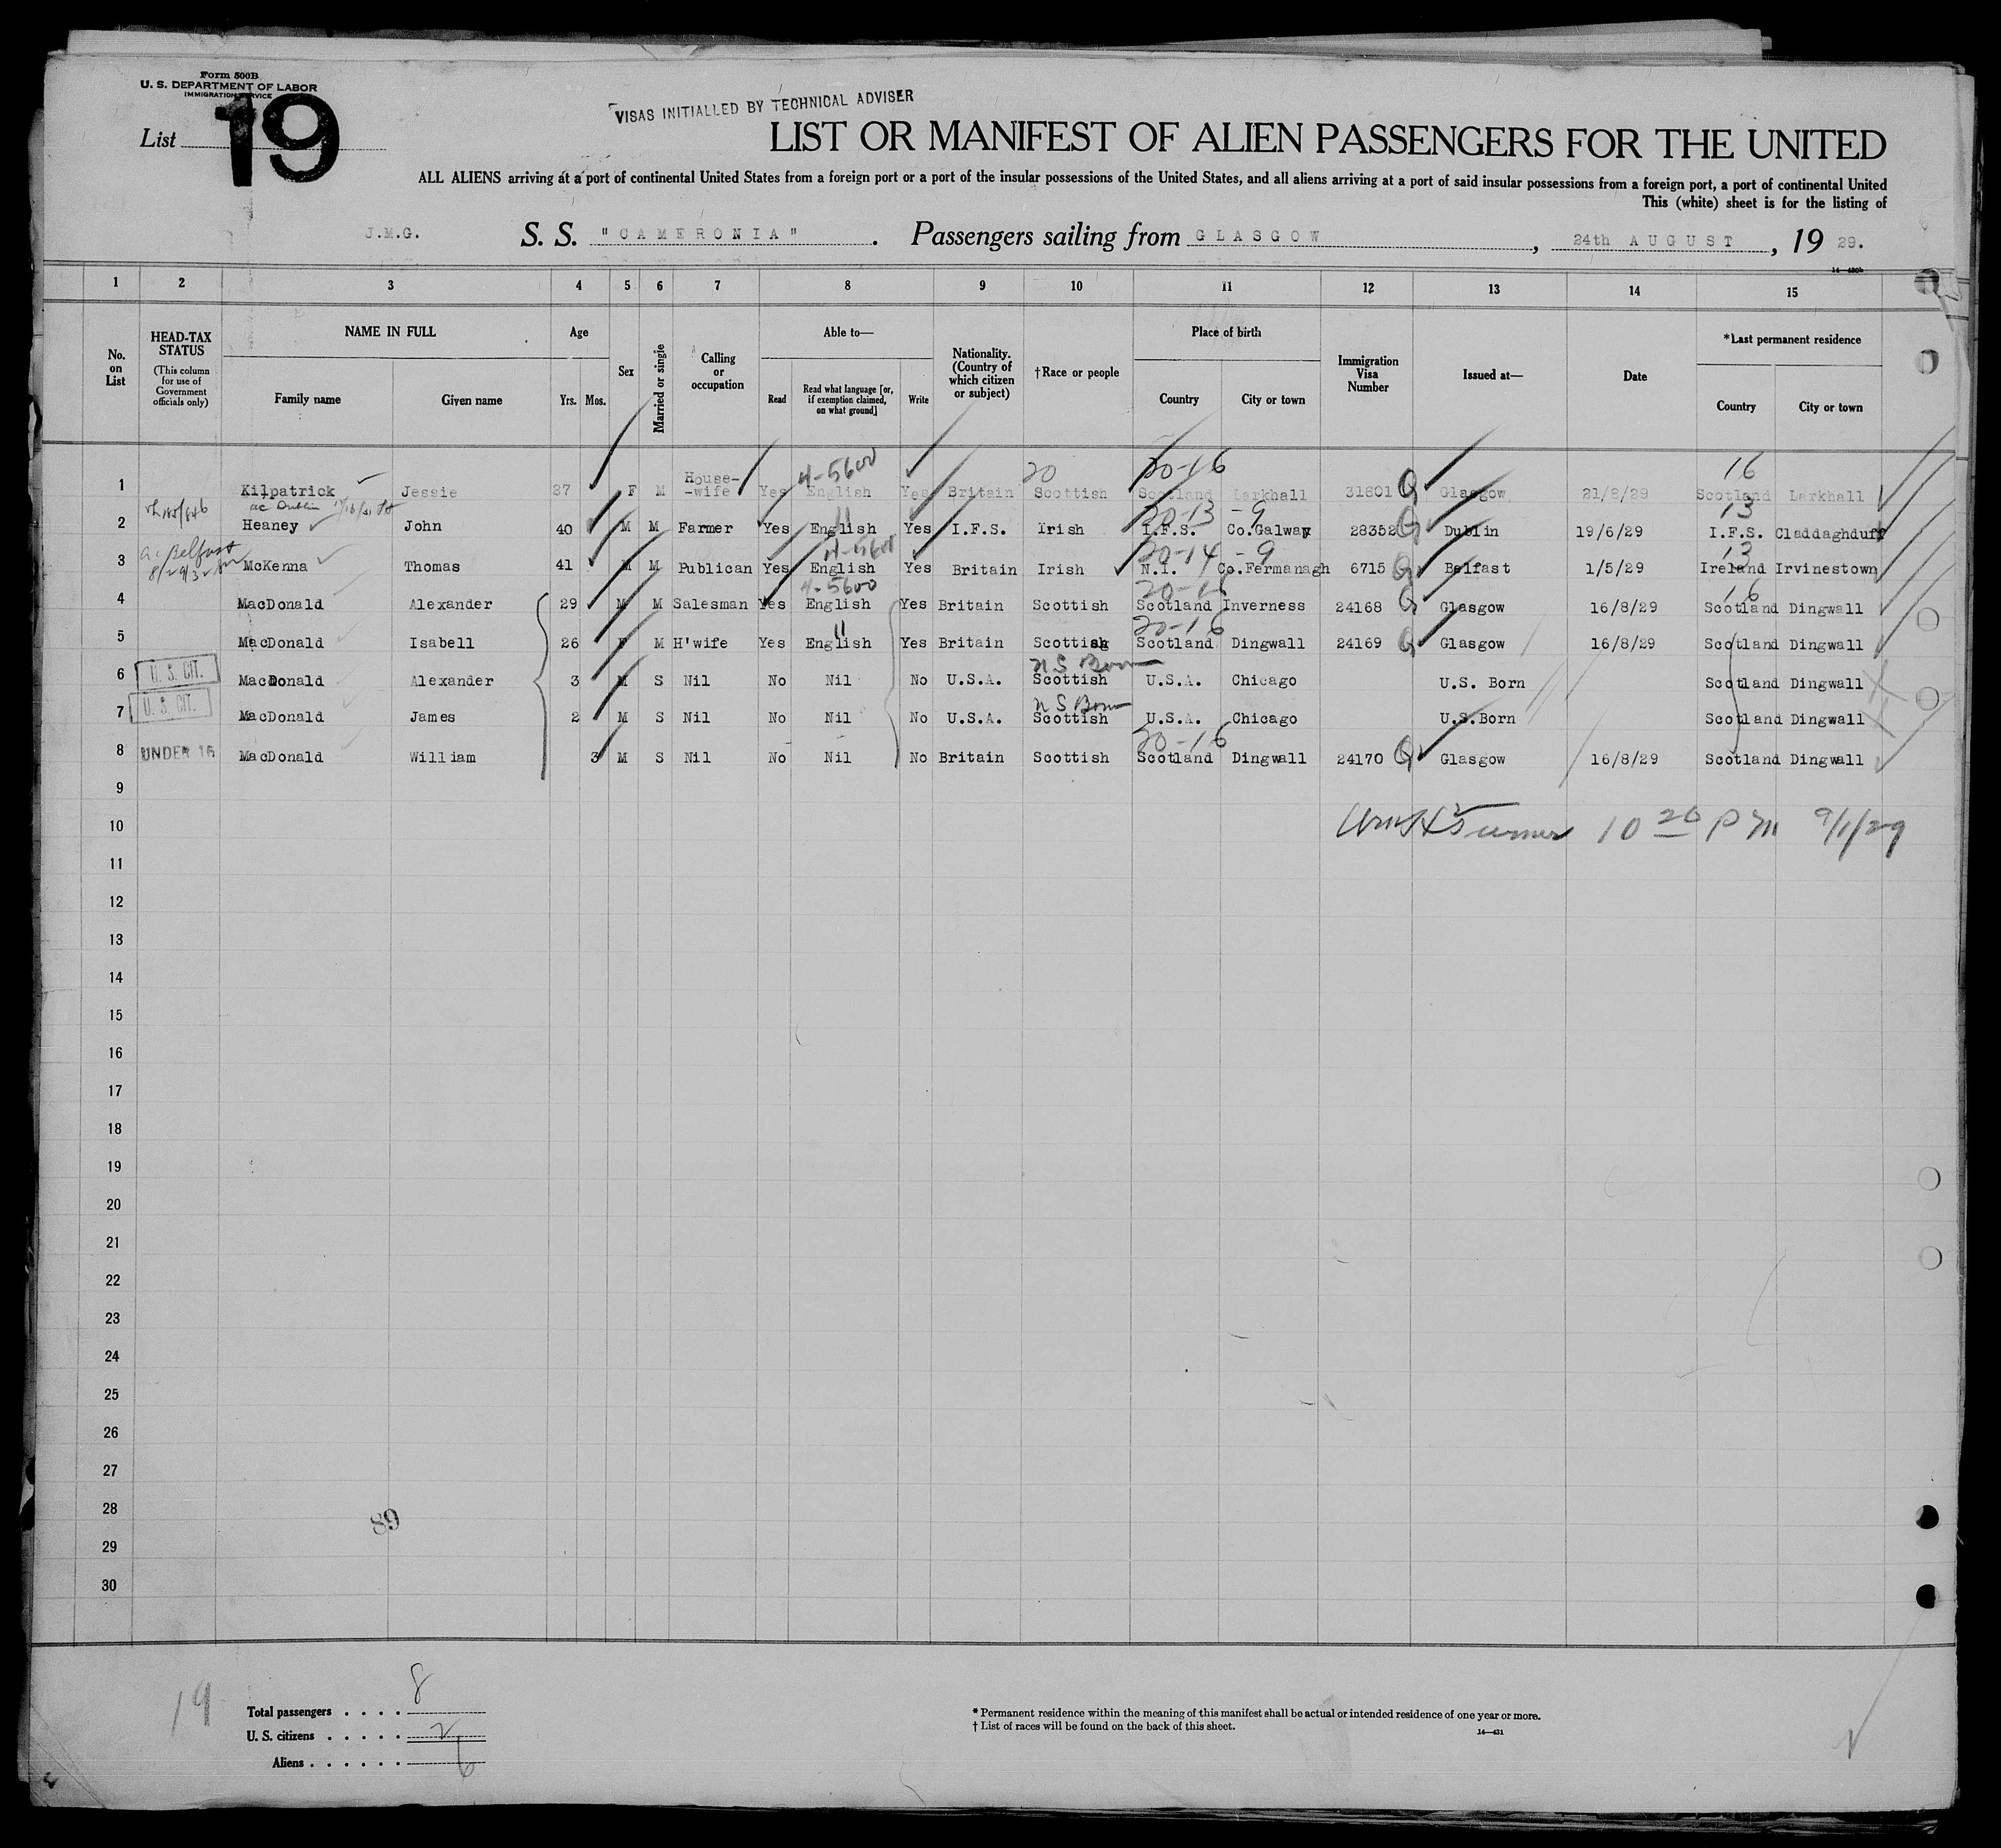 Form 500B
U. S. DEPARTMENT OF LABOR
IMMIGRATION SERVICE
List 19
VISAS INITIALLED BY TECHNICAL ADVISER
LIST OR MANIFEST OF ALIEN PASSENGERS FOR THE UNITED
ALL ALIENS arriving at a port of continental United States from a foreign port or a port of the insular possessions of the United States, and all aliens arriving at a port of said insular possessions from a foreign port, a port of continental United
This (white) sheet is for the listing of
J.M.G. S. S. "CAMERONIA". Passengers sailing from GLASGOW, 24th AUGUST, 19 29.
14—430b
1 2 3 4 5 6 7 8 9 10 11 12 13 14 15
No. on List
HEAD-TAX STATUS
(This column for use of Government officials only)
NAME IN FULL
Family name Given name
Age
Yrs. Mos.
Sex
Married or single
Calling or occupation
Able to—
Read
Read what language [or, if exemption claimed, on what ground]
Write
Nationality. (Country of which citizen or subject)
†Race or people
Place of birth
Country City or town
Immigration Visa Number
Issued at—
Date
*Last permanent residence
Country City or town
4-5600 20 20-16 16
1 Kilpatrick Jessie 27 F M House-wife Yes English Yes Britain Scottish Scotland Larkhall 31601 Glasgow 21/8/29 Scotland Larkhall
ac Dublin
20-13 -9 13
2 Heaney John 40 M M Farmer Yes English Yes I.F.S. Irish I.F.S. Co.Galway 28352 Dublin 19/6/29 I.F.S. Claddaghduff
ac Belfast 4-5600 20-14 -9 13
3 McKenna Thomas 41 M M Publican Yes English Yes Britain Irish N.I. Co.Fermanagh 6715 Belfast 1/5/29 Ireland Irvinestown
4-5600 20-16 16
4 MacDonald Alexander 29 M M Salesman Yes English Yes Britain Scottish Scotland Inverness 24168 Glasgow 16/8/29 Scotland Dingwall
20-16
5 MacDonald Isabell 26 F M H'wife Yes English Yes Britain Scottish Scotland Dingwall 24169 Glasgow 16/8/29 Scotland Dingwall
U S Born
6 U. S. CIT. MacDonald Alexander 3 M S Nil No Nil No U.S.A. Scottish U.S.A. Chicago U.S. Born Scotland Dingwall
U S Born
7 U. S. CIT. MacDonald James 2 M S Nil No Nil No U.S.A. Scottish U.S.A. Chicago U.S.Born Scotland Dingwall
20-16
8 UNDER 16 MacDonald William 3 M S Nil No Nil No Britain Scottish Scotland Dingwall 24170 Glasgow 16/8/29 Scotland Dingwall
9
10 Wm H Turner 10 20 P M 9/1/29
11
12
13
14
15
16
17
18
19
20
21
22
23
24
25
26
27
28
89
29
30
19
Total passengers . . . . 8
U. S. citizens . . . . . 2
Aliens . . . . . . 6
* Permanent residence within the meaning of this manifest shall be actual or intended residence of one year or more.
† List of races will be found on the back of this sheet.
14—431